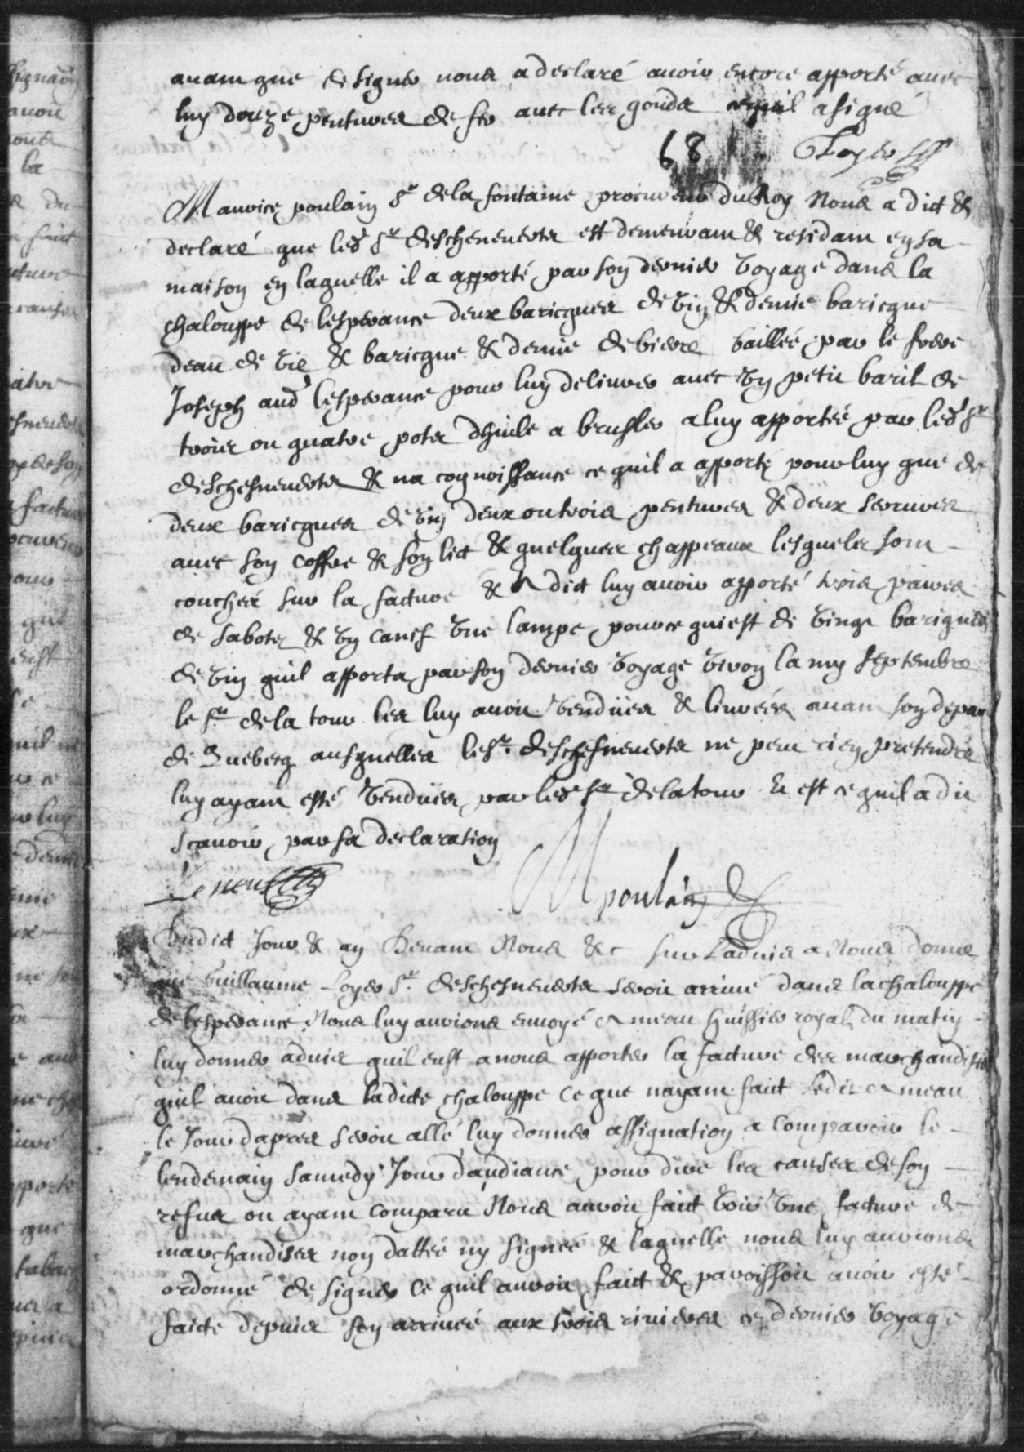 avant que de signer nous a declaré avoir encore apporté avec
luy douze pentures de fer avec les gonds ce quil a signé
68 GLoyer
Maurice poulain Sr de la fontaine procureur du Roy Nous a dict &
declaré que led Sr deschesneverts est demeurant & residant en sa
maison en laquelle il a apporté par son dernier voyage dans la
chalouppe de lesperance deux baricques de vin & demie baricque
deau de vie & baricque & demie de biere baillée par le frere
Joseph aud lesperance pour luy delivrer avec un petit baril de
trois ou quatre pots dhuile a brusler a luy apporté par led Sr
deschesneverts & na cognoissance ce quil a apporté pour luy que de
deux baricques de vin deux ou trois pentures & deux serrures
avec son coffre & son lict & quelques chappeaux lesquels sont
couchés sur la facture & a dict luy avoir apporté trois paires
de sabots & un canif une lampe, pour ce qui est de vingt bariques
de vin quil apporta par son dernier voyage viron la my septembre
le Sr de la tour les luy avoit vendües & livrées avant son depart
de Quebecq ausquelles le Sr deschesneverts ne peut rien pretendre
luy ayant esté vendües par led Sr de la tour Et est ce quil a dit
scavoir par sa declaration
Leneuf Mpoulain
Dudict Jour & an Devant Nous &c sur Ladvis a Nous donné
que Guillaume Loyer Sr deschesneverts seroit arrivé dans la chalouppe
de lesperance Nous luy aurions envoyé Ameau huissier royal du matin
luy donner advis quil eust a nous apporter la facture des marchandises
quil avoit dans ladicte chalouppe ce que nayant faict ledit Ameau
le Jour dapres seroit allé luy donner assignation a comparoir le
lendemain samedy Jour daudiance pour dire les causes de son
refus ou ayant comparu Nous auroit faict voir une facture de
marchandises non dattée ny signée & laquelle nous luy aurions
ordonné de signer ce quil auroit faict & paroissoit avoir esté
faicte depuis son arrivée aux trois rivieres ce dernier voyage